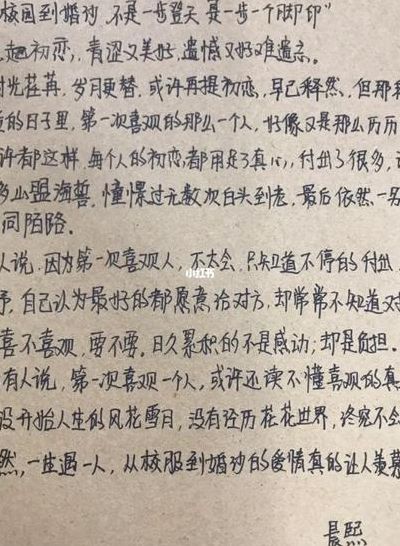 校园到婚沙，不是一步登天是一步一个脚印”
起初恋，青涩又美好，遗憾又好难遗忘。
时光荏苒，岁月更替，或许再提初恋，早已释然，但那
的日子里，第一次喜欢的那么一个人，好像又是那么历历
许都这样，每个人的初恋都用足了真心，付出了很多，
多山盟海誓，憧憬过无数次白头到老，最后依然一
同陌路。
人说，因为第一次喜观人，不太会，只知道不停的付出，
予，自己认为最好的都愿意给对方，却常常不知道对
喜不喜观，要不要。日久累积的不是感动；却是负担。
有人说，第一次喜观一个人，或许还读不懂喜观的真
没开始人生的风花雪月，没有经历花花世界，终究不会
然，一生遇一人，从校服到婚沙的爱情真的让人羡慕
晨熙
小红书